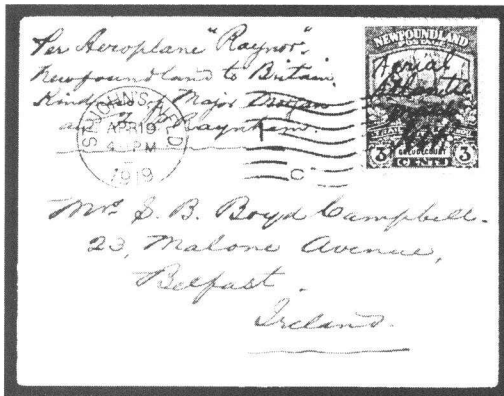 Per Aeroplane "Raynor".
Newfoundland to Britain.
Kindness of Major
and Raynham.
ST. JOHN'S, NFLD
APR 19
4 PM
1919
NEWFOUNDLAND
POSTAGE
Aerial
Atlantic
GUEUDECOURT
3 CENTS 3
Mrs. E. B. Boyd Campbell.
23, Malone Avenue,
Belfast.
Ireland.